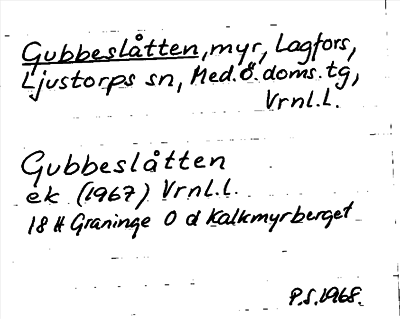 Gubbeslåtten, myr, Lagfors,
Ljustorps sn, Med.Ö.doms.tg,
Vrnl.L.
Gubbeslåtten
ek (1967) Vrnl.l.
18 H Graninge 0 d Kalkmyrberget
P.S.1968.